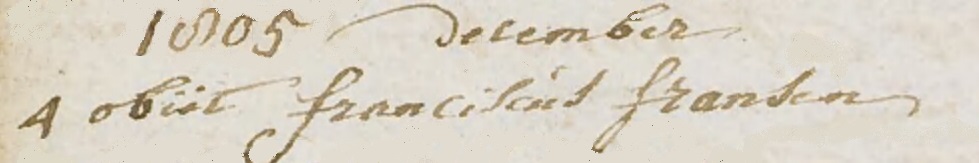 1805 december
4 obiit franciscus fransen